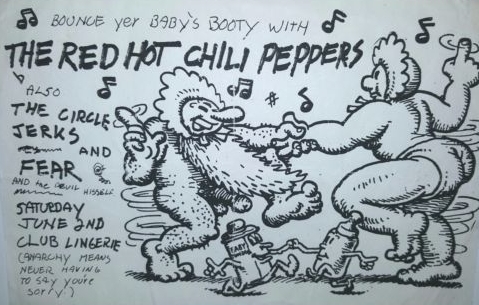 BOUNCE yer BABY'S BOOTY WITH
THE RED HOT CHILI PEPPERS
ALSO
THE CIRCLE
JERKS
AND
FEAR
AND the DEVIL HISSELF
SATURDAY
JUNE 2ND
CLUB LINGERIE
(ANARCHY MEANS
NEVER HAVING
TO SAY you're
SORRY)
BABY